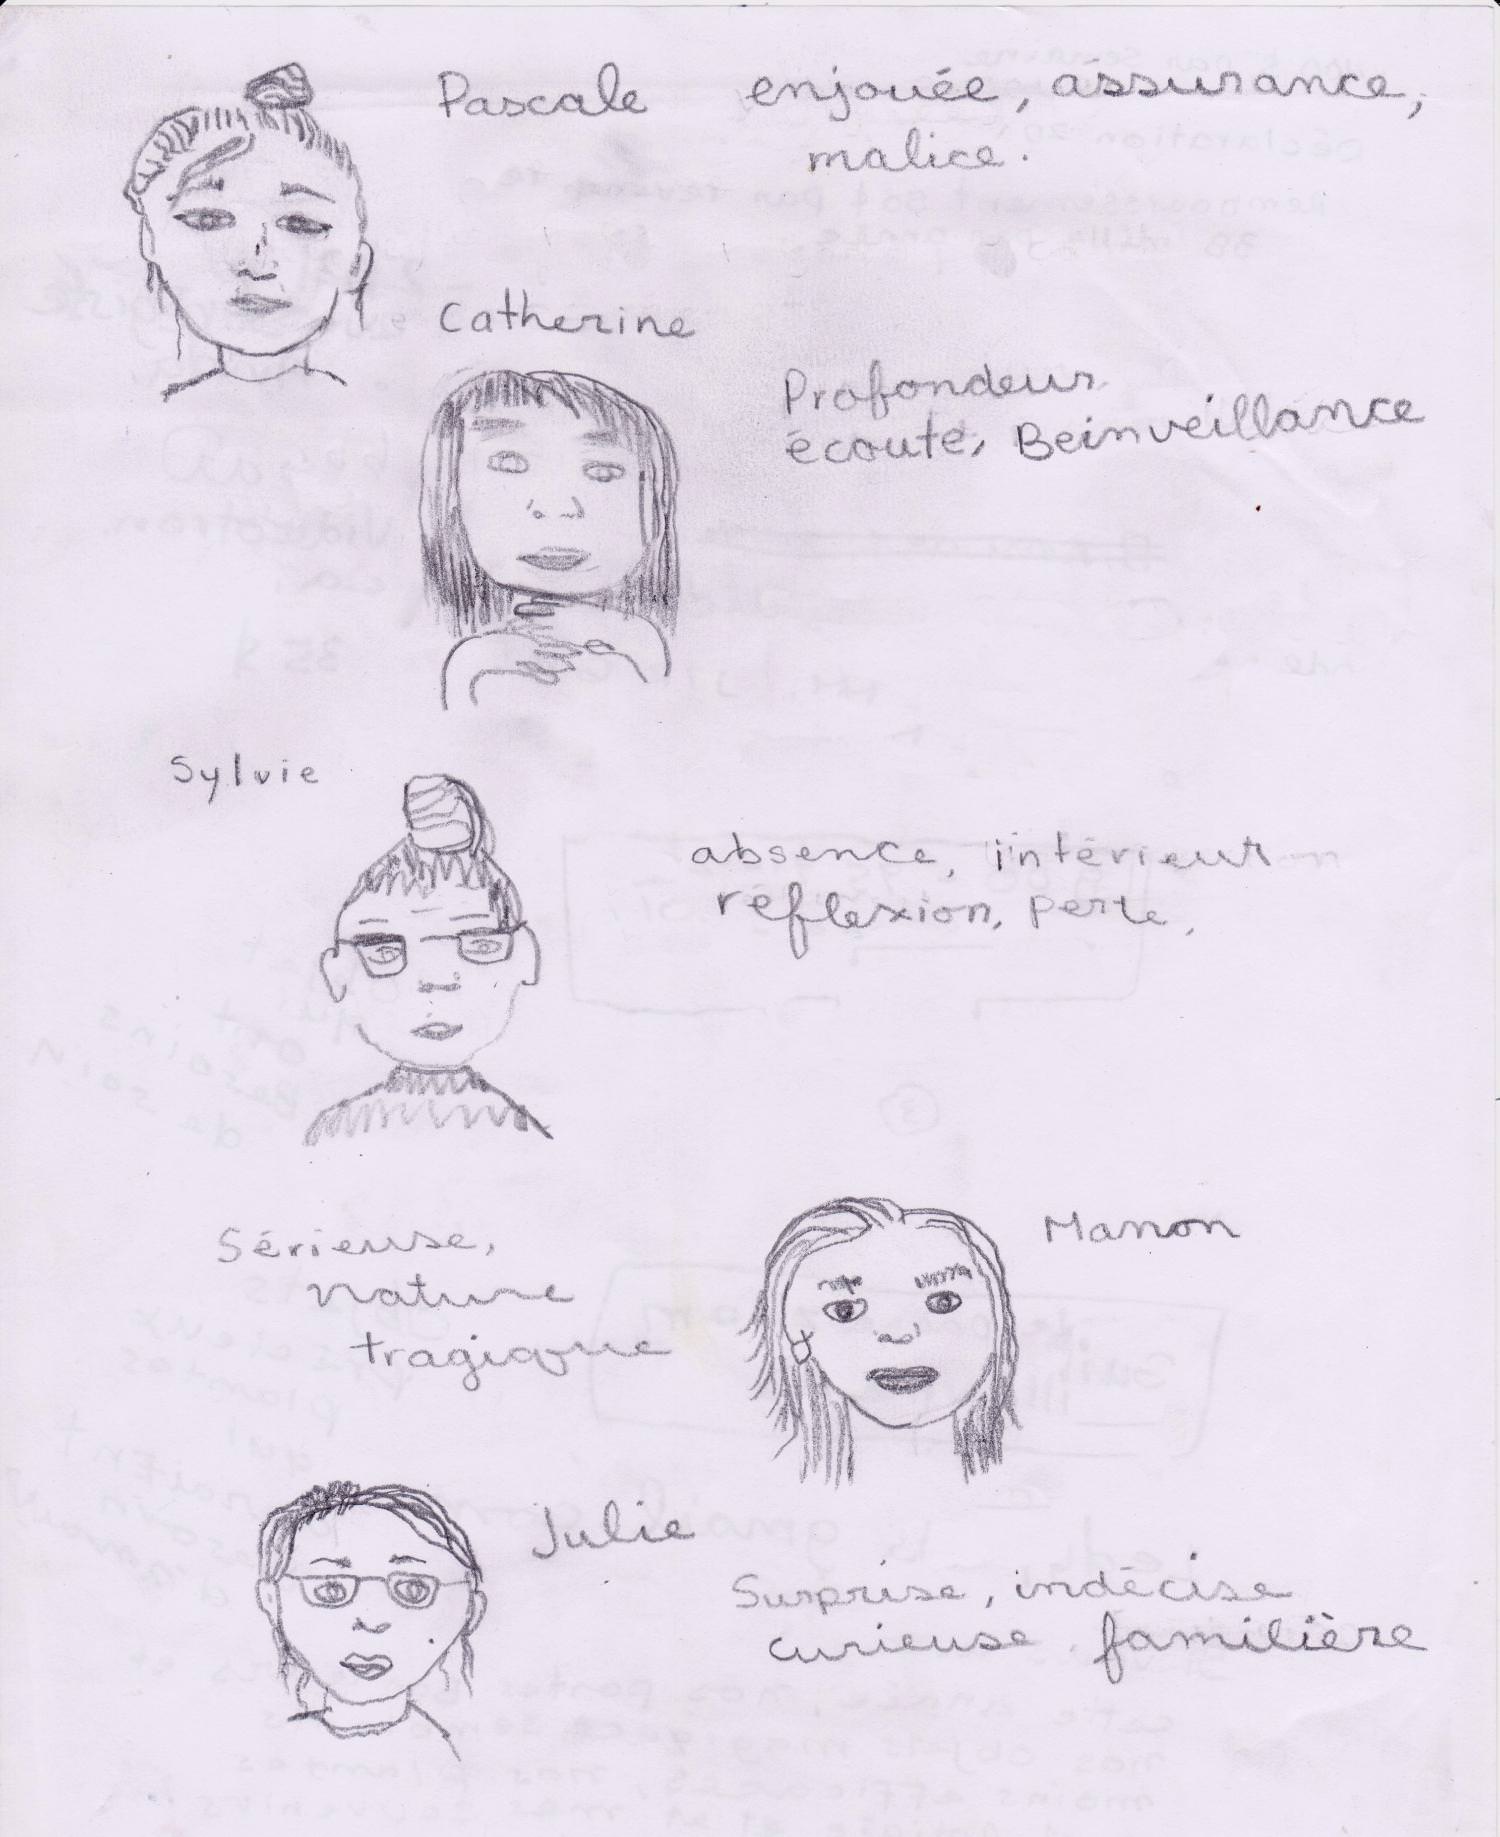 Pascale enjouée, assurance,
malice.
Catherine
Profondeur
écoute, Beinveillance
Sylvie
absence, intérieur
réflexion, perte,
Manon
Sérieuse,
nature
tragique
Julie
Surprise, indécise
curieuse, familière